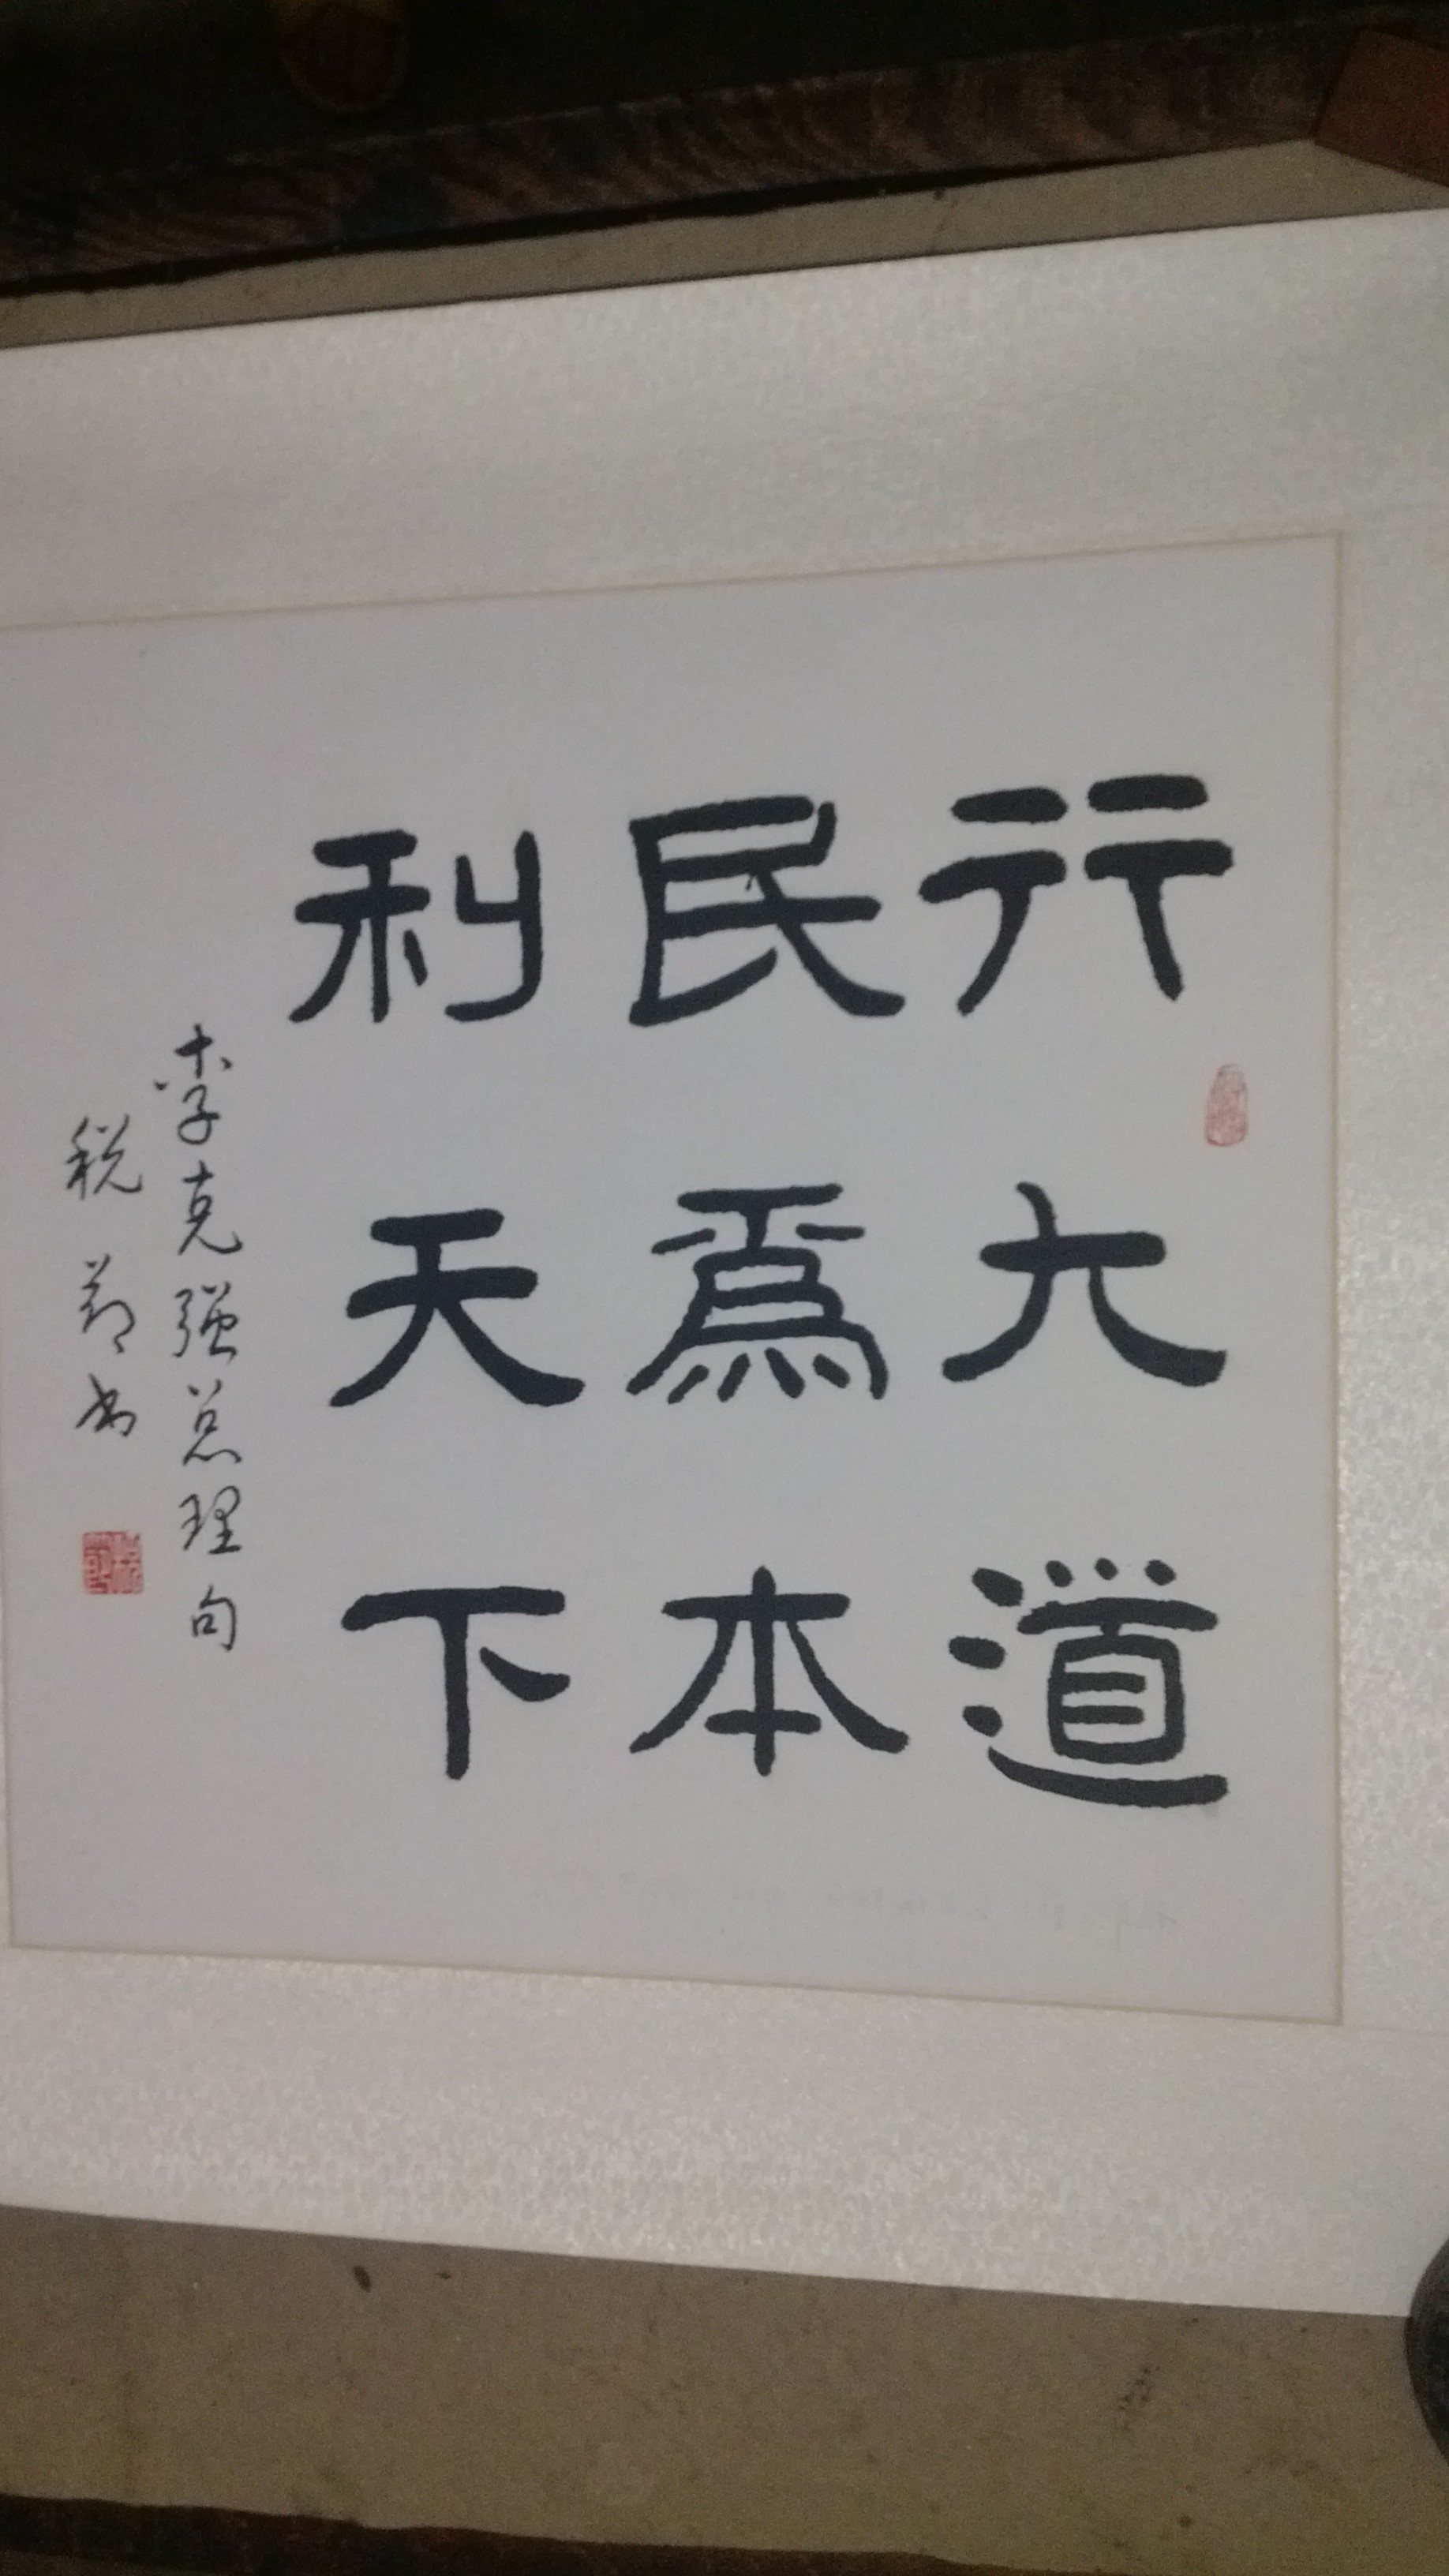 行大道
民為本
利天下
李克强总理句
税 书